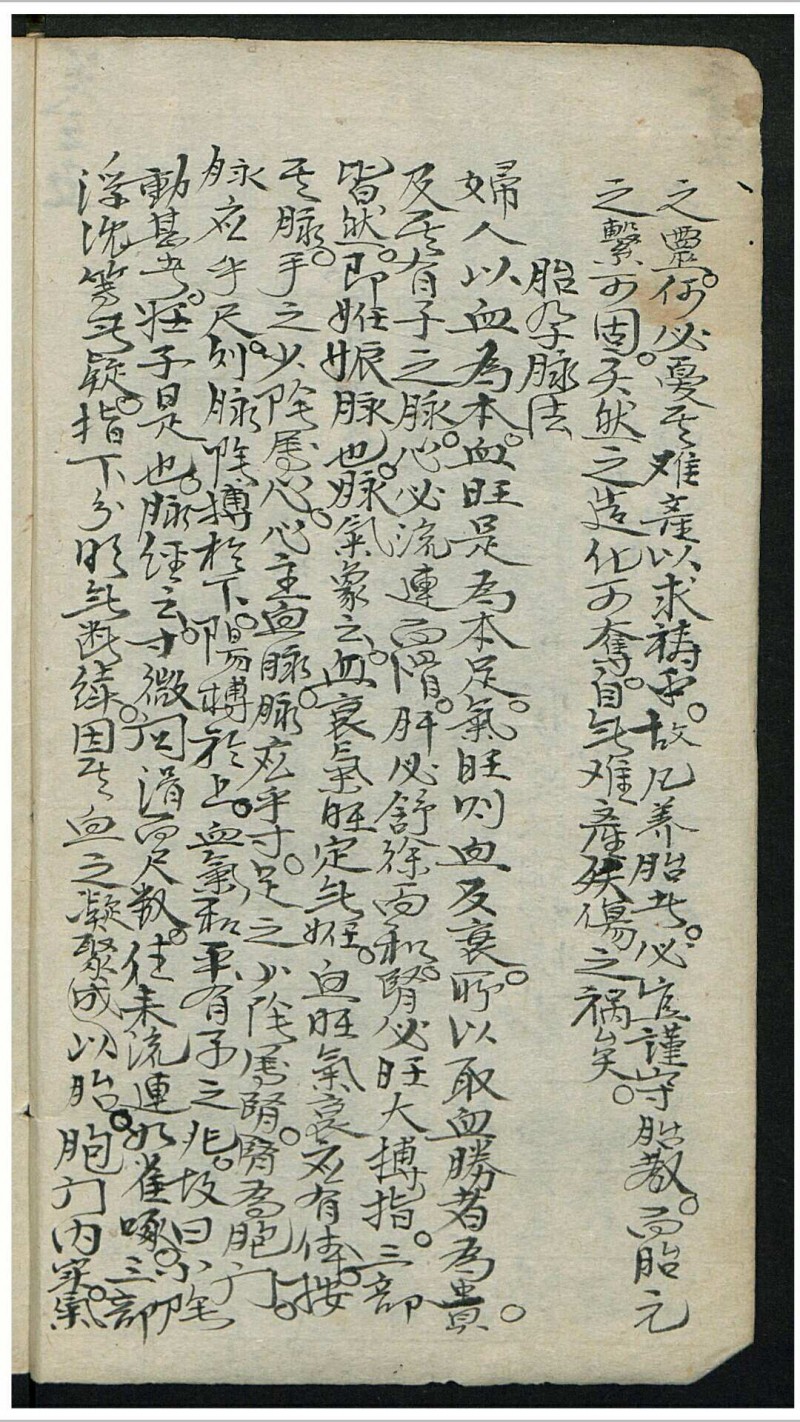 之靈。何必憂其难產以求禱乎。故凡养胎者。必宜謹守胎教。而胎元
之繫可固。天然之造化可奪。自无难產殀傷之禍矣。
胎孕脉法
婦人以血為本。血旺是為本足。氣旺则血反衰。所以取血勝者為貴。
及其有子之脉。心必流連而滑。肝必舒徐而和。腎必旺大搏指。三部
皆然。即妊娠脉也。脉氣象云。血衰氣旺定无妊。血旺氣衰应有体。按
其脉。手之少陰属心。心主血脉。脉应乎寸。足之少陰属腎。腎為胞门。
脉应乎尺。列脉陰搏於下。陽搏於上。血氣和平。有子之兆。故曰少陰
動甚者。妊子是也。脉經云。寸微関滑而尺数。往来流連如雀啄。三部
浮沈等无疑。指下分明无断续。因其血之凝聚成以胎。胞门内实。氣